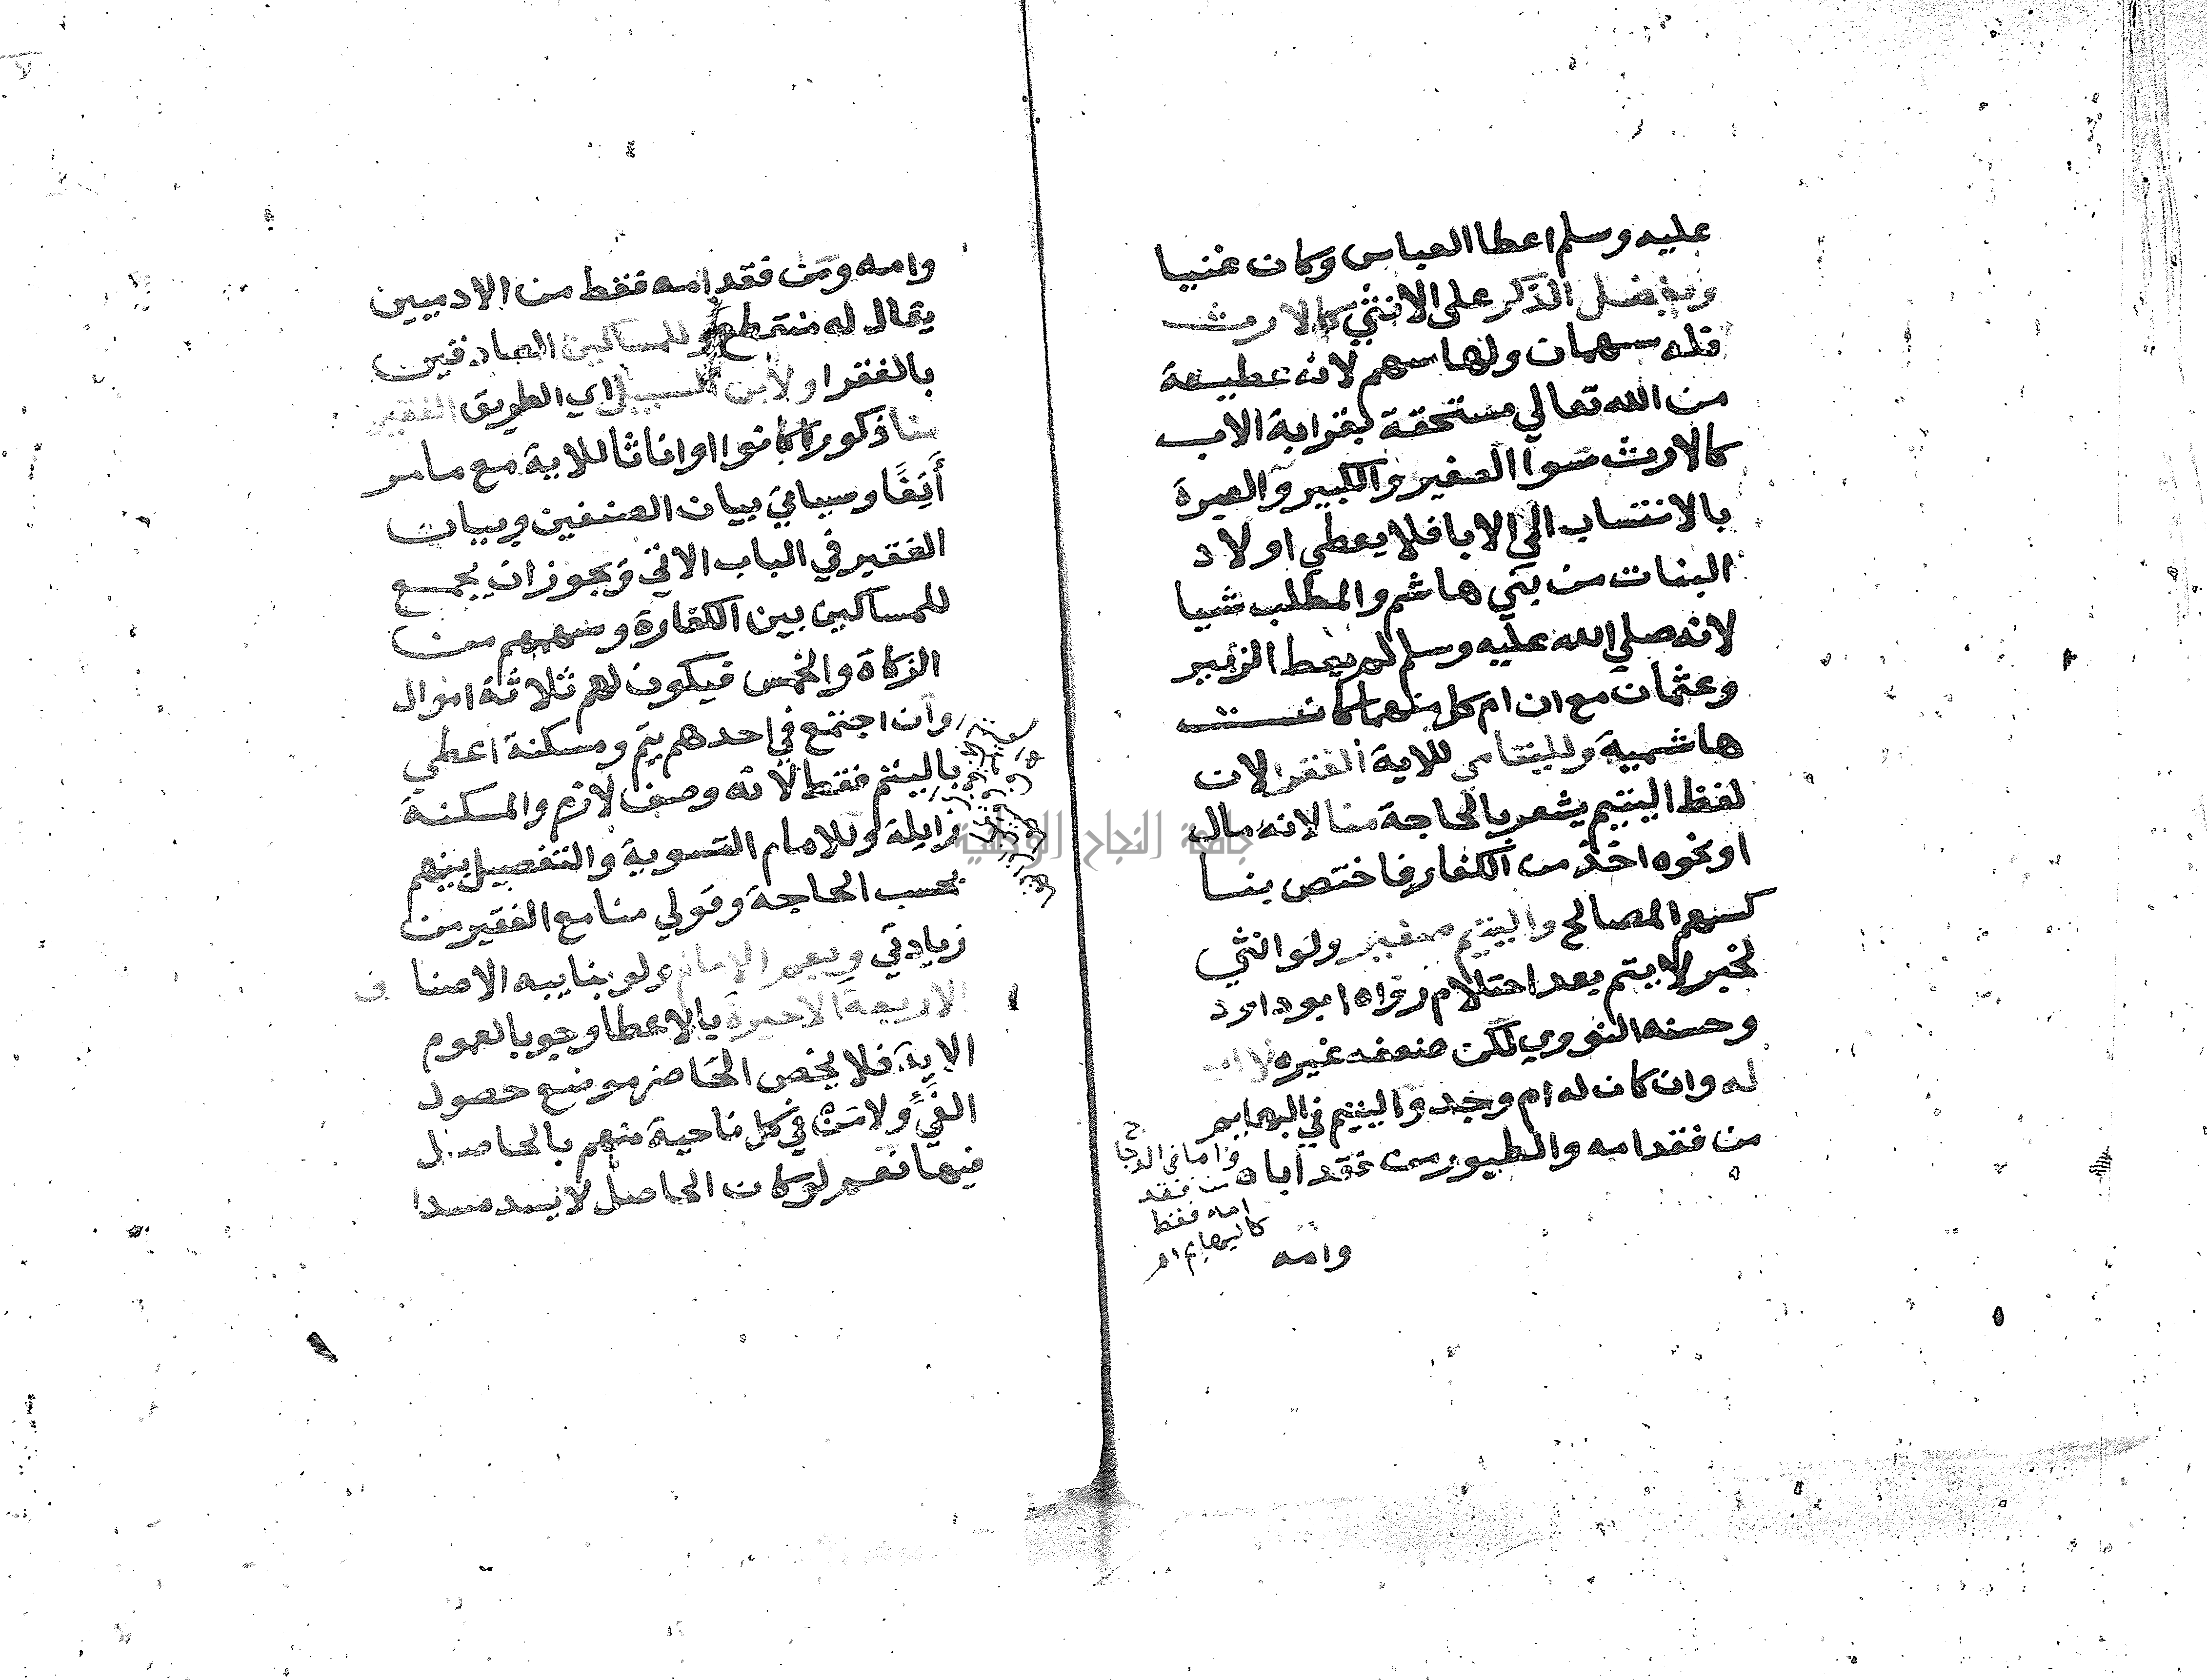 عليه وسلم اعطا العباس وكان غنيا
ويفضل الذكر على الانثي كالارث
فله سهمان ولها سهم لانه عطية
من الله تعالي مستحقة بقرابة الاب
كالارث سوآ الصغير والكبير والعبرة
بالانتساب الي الابا فلا يعطي اولاد
البنات من بني هاشم والمطلب شيا
لانه صلي الله عليه وسلم لم يعط الزبير
وعثمان مع ان ام كل منهما كانت
هاشمية ولليتامي للاية الفقرا لان
لفظ اليتيم يشعر بالحاجة منا لانه مال
او نحوه اخذ من الكفار فاختص بنا
كسهم المصالح واليتيم صغير ولو انثي
لخبر لا يتم بعد احتلام رواه ابو داود
وحسنه النووي لكن ضعفه غيره لا اب
له وان كان له ام وجد واليتيم في البهايم
من فقد امه والطيور من فقد اباه
واما في الدجا
ج
من فقد
امه فقط
كالبهايم اه
وامه
وامه ومن فقد امه فقط من الادميين
يقال له منقطع وللمساكين الصادقين
بالفقرا ولابن السبيل اي الطريق الفقير
منا ذكورا كانوا او اناثا للاية مع ما مر
أَنِفًا وسياتي بيان الصنفين وبيان
الفقير في الباب الاتي ويجوز ان يجمع
للمساكين بين الكفارة وسهمهم من
الزكاة والخمس فيكون لهم ثلاثة اموال
وان اجتمع في احدهم يتم ومسكنة اعطي
باليتم فقط لانه وصف لازم والمسكنة
زايلة وللامام التسوية والتفضيل بينهم
بحسب الحاجة وقولي منا مع الفقير من
زيادتي ويعم الامام ولو بنايبه الاصنا
ف
الاربعة الاخيرة بالاعطا وجوبا لعموم
الاية فلا يخص الحاضر بموضع حصول
الفئ ولا من في كل ناحية منهم بالحاصل
فيها نعم لو كان الحاصل لا يسد مسدا
جامعة النجاح الوطنية